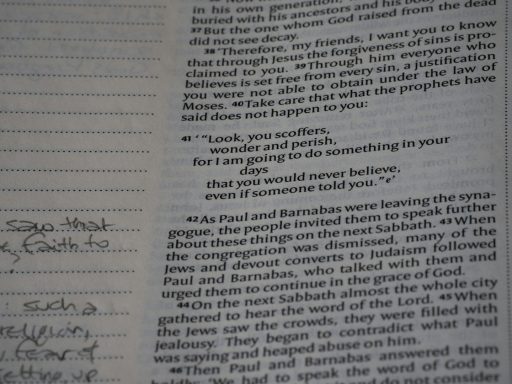 in his own generation,
buried with his ancestors and his body
37 But the one whom God raised from the dead
did not see decay.
38 'Therefore, my friends, I want you to know
that through Jesus the forgiveness of sins is pro-
claimed to you. 39 Through him everyone who
believes is set free from every sin, a justification
you were not able to obtain under the law of
Moses. 40 Take care that what the prophets have
said does not happen to you:
41 ' "Look, you scoffers,
wonder and perish,
for I am going to do something in your
days
that you would never believe,
even if someone told you." e'
42 As Paul and Barnabas were leaving the syna-
gogue, the people invited them to speak further
about these things on the next Sabbath. 43 When
the congregation was dismissed, many of the
Jews and devout converts to Judaism followed
Paul and Barnabas, who talked with them and
urged them to continue in the grace of God.
44 On the next Sabbath almost the whole city
gathered to hear the word of the Lord. 45 When
the Jews saw the crowds, they were filled with
jealousy. They began to contradict what Paul
was saying and heaped abuse on him.
46 Then Paul and Barnabas answered them
boldly: 'We had to speak the word of God to
you do not consider
saw that
faith to
such a
religion,
fear of
setting up